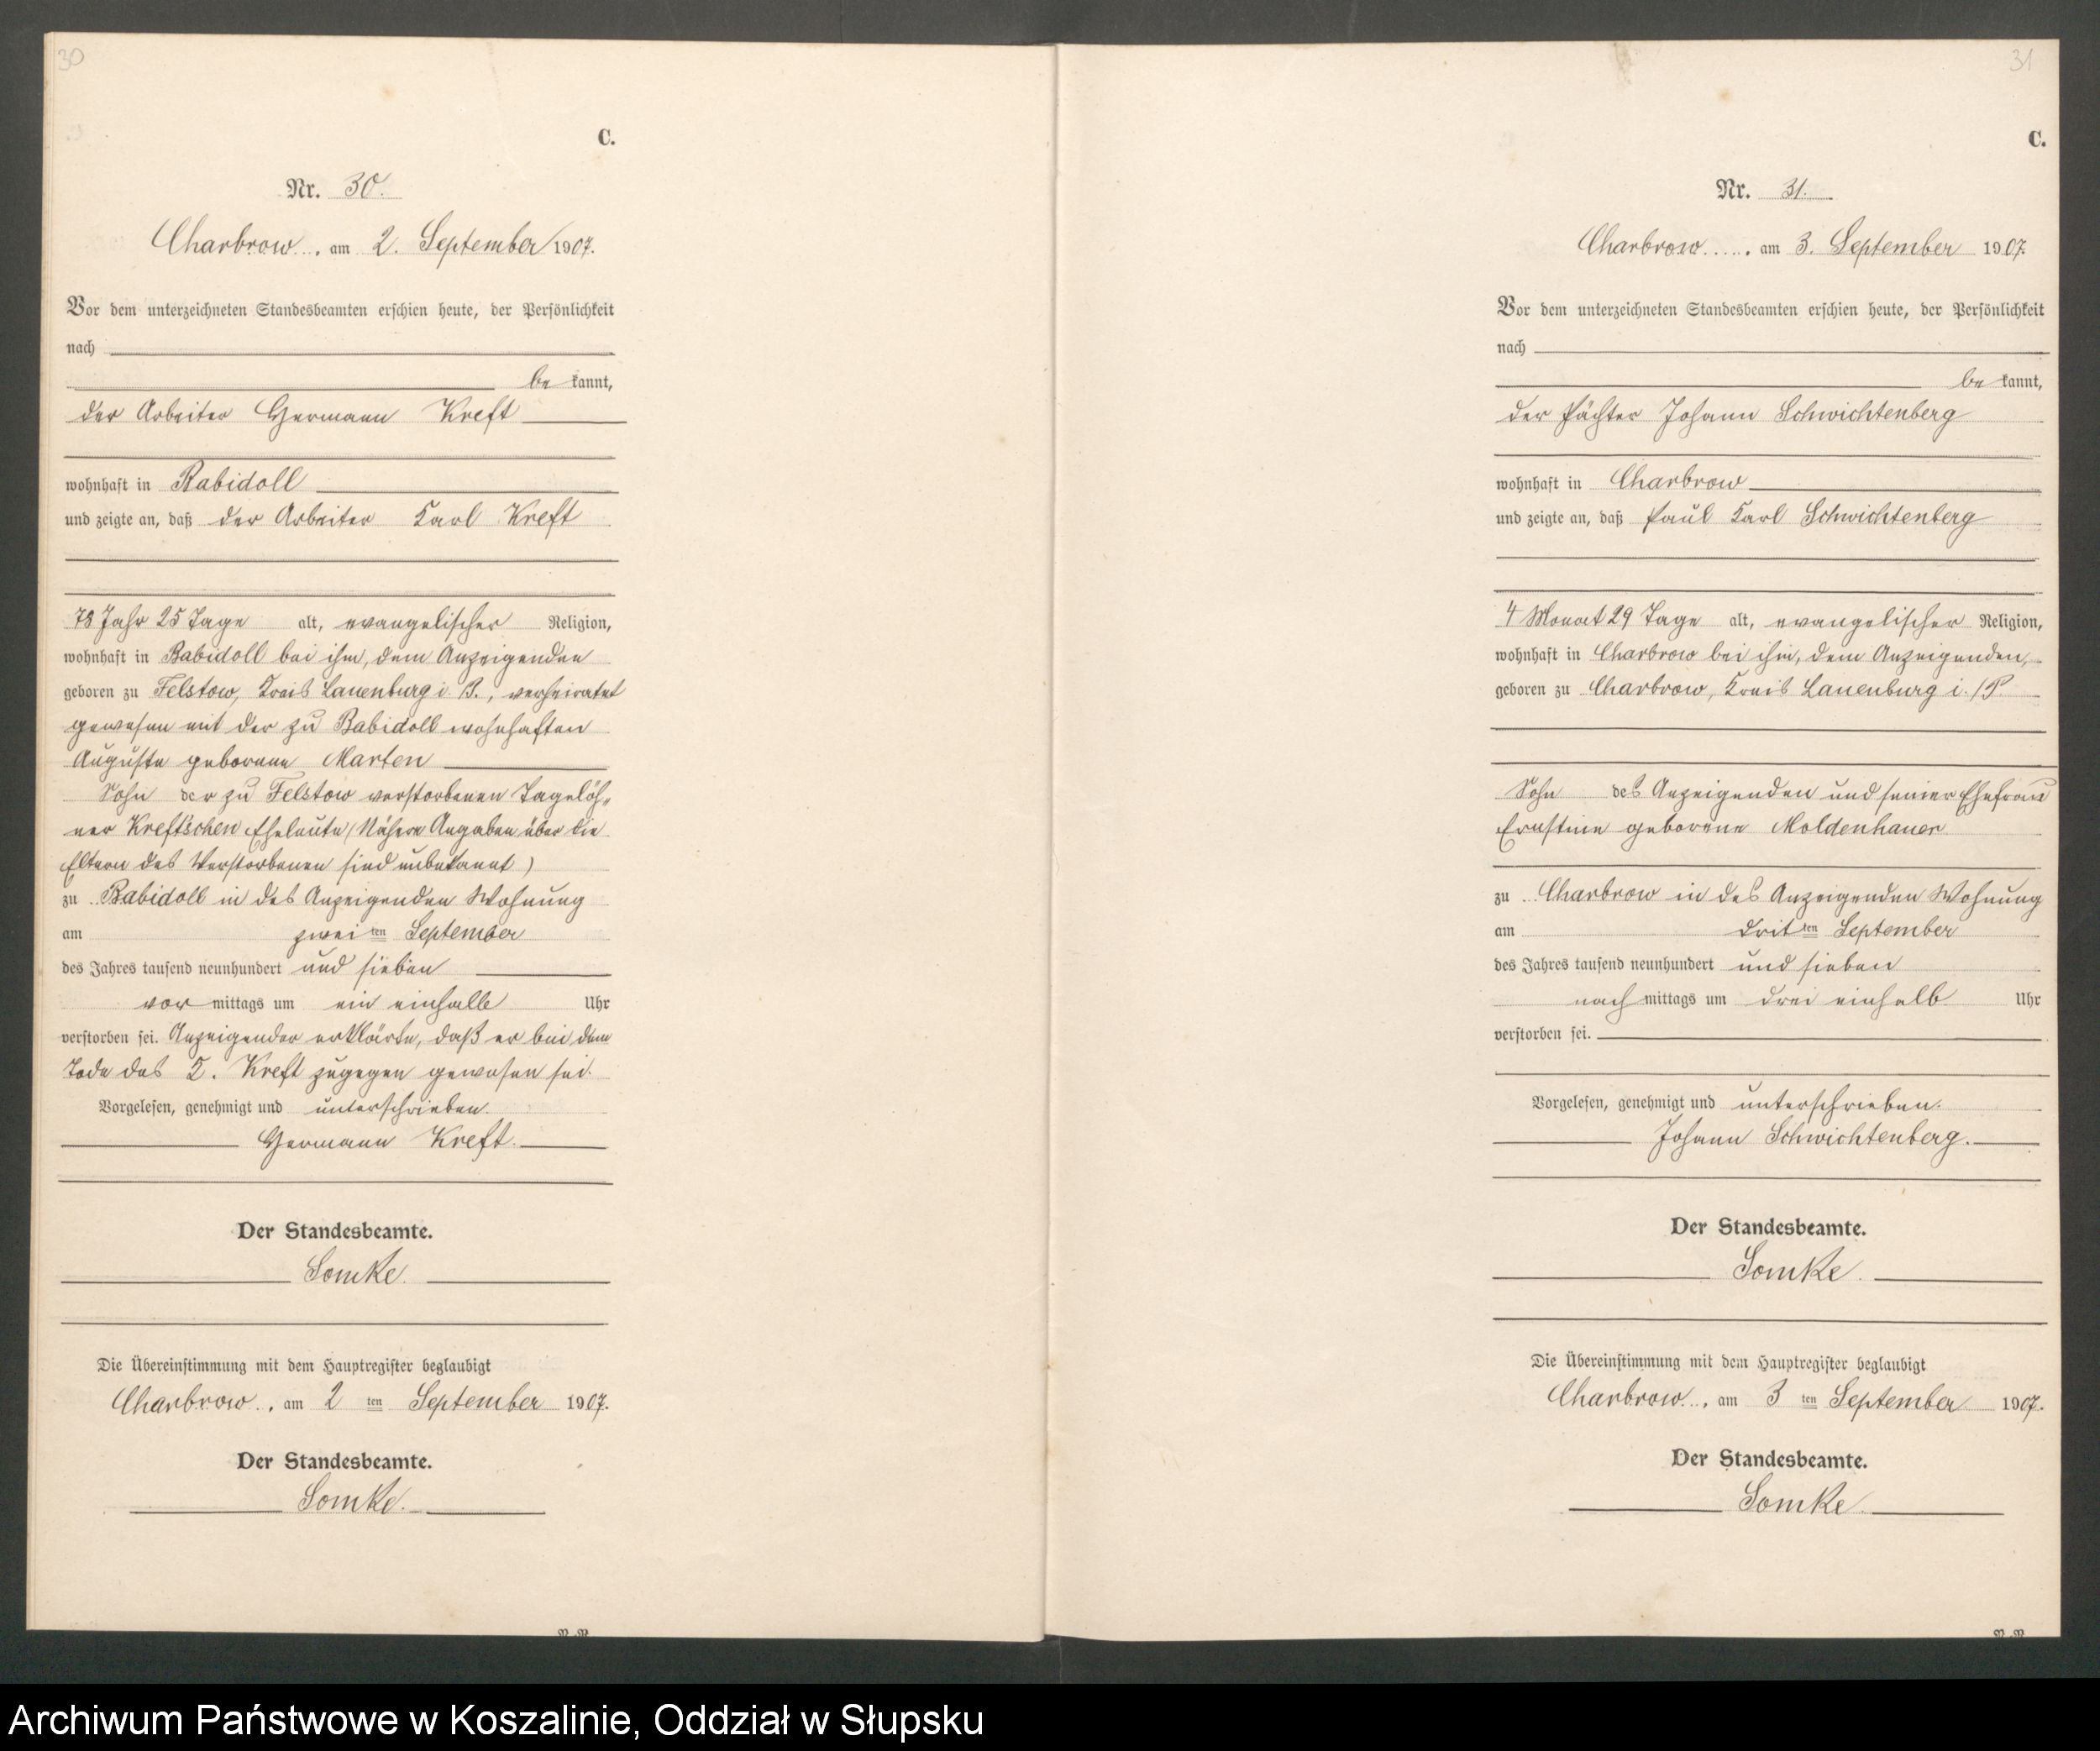 30
C.
Nr. 30.
Charbrow, am 2. September 1907.
Vor dem unterzeichneten Standesbeamten erschien heute, der Persönlichkeit
nach
be kannt,
der Arbeiter Hermann Kreft
wohnhaft in Rabidoll
und zeigte an, daß der Arbeiter Karl Kreft
78 Jahr 25 Tage alt, evangelischer Religion,
wohnhaft in Babidoll bei ihm, dem Anzeigenden
geboren zu Felstow, Kreis Lauenburg i. P., verheiratet
gewesen mit der zu Babidoll wohnhaften
Auguste geborene Marten
Sohn der zu Felstow verstorbenen Tagelöh-
ner Kreft'schen Eheleute (Nähere Angaben über die
Eltern des Verstorbenen sind unbekannt)
zu Babidoll in des Anzeigenden Wohnung
am zwei ten September
des Jahres tausend neunhundert und sieben
vor mittags um ein einhalb Uhr
verstorben sei. Anzeigender erklärte, daß er bei dem
Tode des K. Kreft zugegen gewesen sei.
Vorgelesen, genehmigt und unterschrieben.
Hermann Kreft.
Der Standesbeamte.
Somke.
Die Übereinstimmung mit dem Hauptregister beglaubigt
Charbrow, am 2 ten September 1907.
Der Standesbeamte.
Somke.
31
C.
Nr. 31.
Charbrow, am 3. September 1907.
Vor dem unterzeichneten Standesbeamten erschien heute, der Persönlichkeit
nach
be kannt,
der Pächter Johann Schwichtenberg
wohnhaft in Charbrow
und zeigte an, daß Paul Karl Schwichtenberg
4 Monat 29 Tage alt, evangelischer Religion,
wohnhaft in Charbrow bei ihm, dem Anzeigenden,
geboren zu Charbrow, Kreis Lauenburg i./P.
Sohn des Anzeigenden und seiner Ehefrau
Ernstine geborene Moldenhauer
zu Charbrow in des Anzeigenden Wohnung
am drit ten September
des Jahres tausend neunhundert und sieben
nach mittags um drei einhalb Uhr
verstorben sei.
Vorgelesen, genehmigt und unterschrieben.
Johann Schwichtenberg.
Der Standesbeamte.
Somke.
Die Übereinstimmung mit dem Hauptregister beglaubigt
Charbrow, am 3 ten September 1907.
Der Standesbeamte.
Somke
Archiwum Państwowe w Koszalinie, Oddział w Słupsku